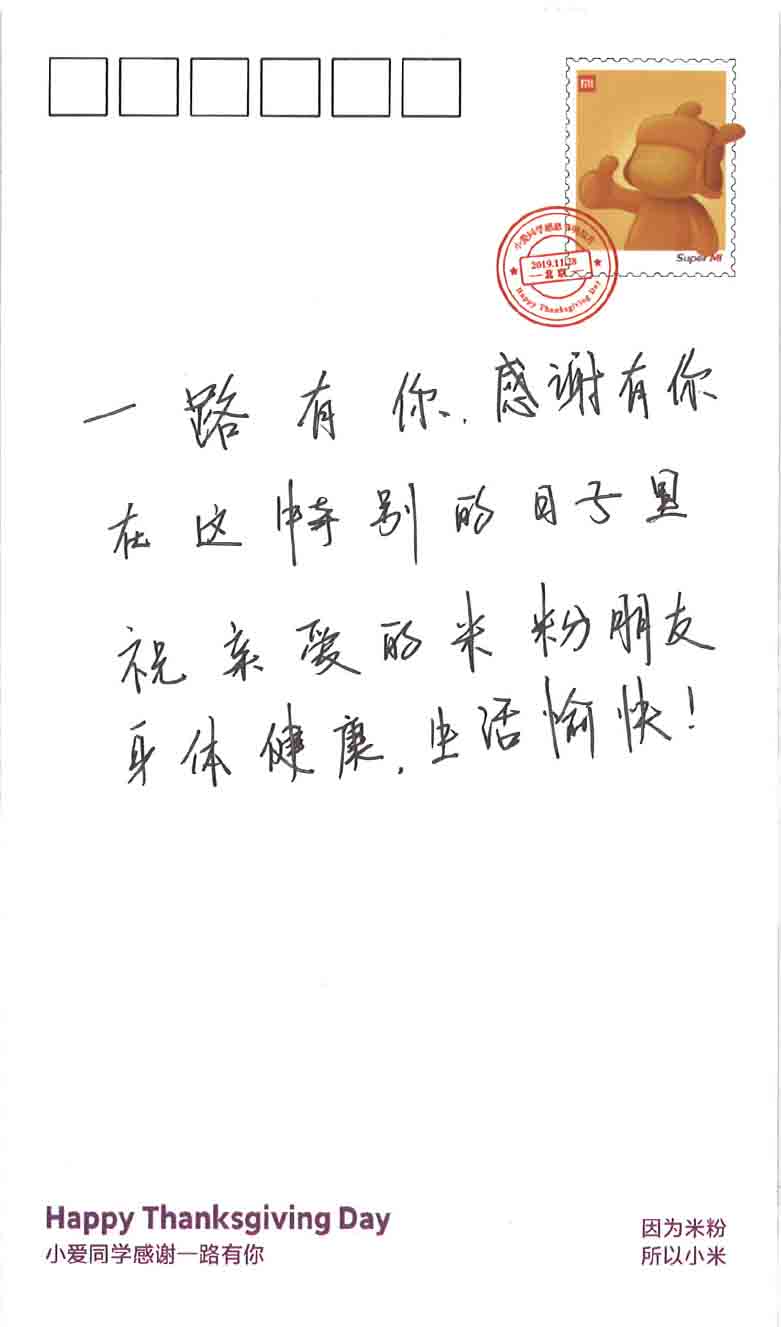 MI
Super MI
2019.11.28
北京
Happy Thanksgiving Day
一路有你,感谢有你
在这特别的日子里
祝亲爱的米粉朋友
身体健康,生活愉快!
Happy Thanksgiving Day
小爱同学感谢一路有你
因为米粉
所以小米